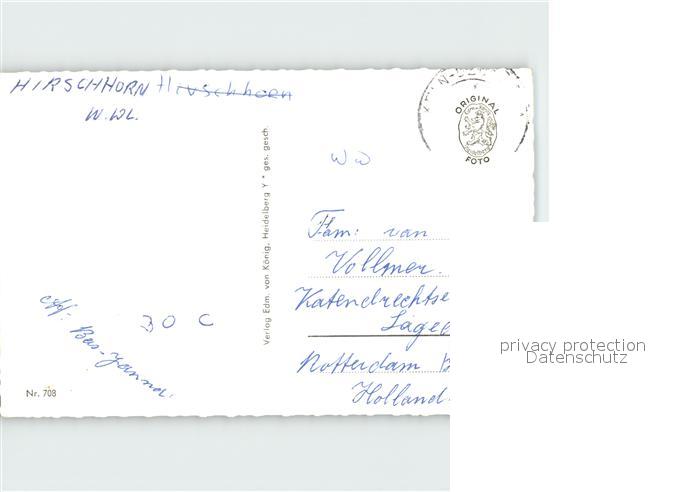 HIRSCHHORN Hirschhorn
W. WL.
ORIGINAL
FOTO
W W
Verlag Edm. von König, Heidelberg Y * ges. gesch.
Fam: van
Vollmer.
Katendrechtse
Lage
Rotterdam
Holland.
30 C
Bas-Janna.
Nr. 708
privacy protection
Datenschutz